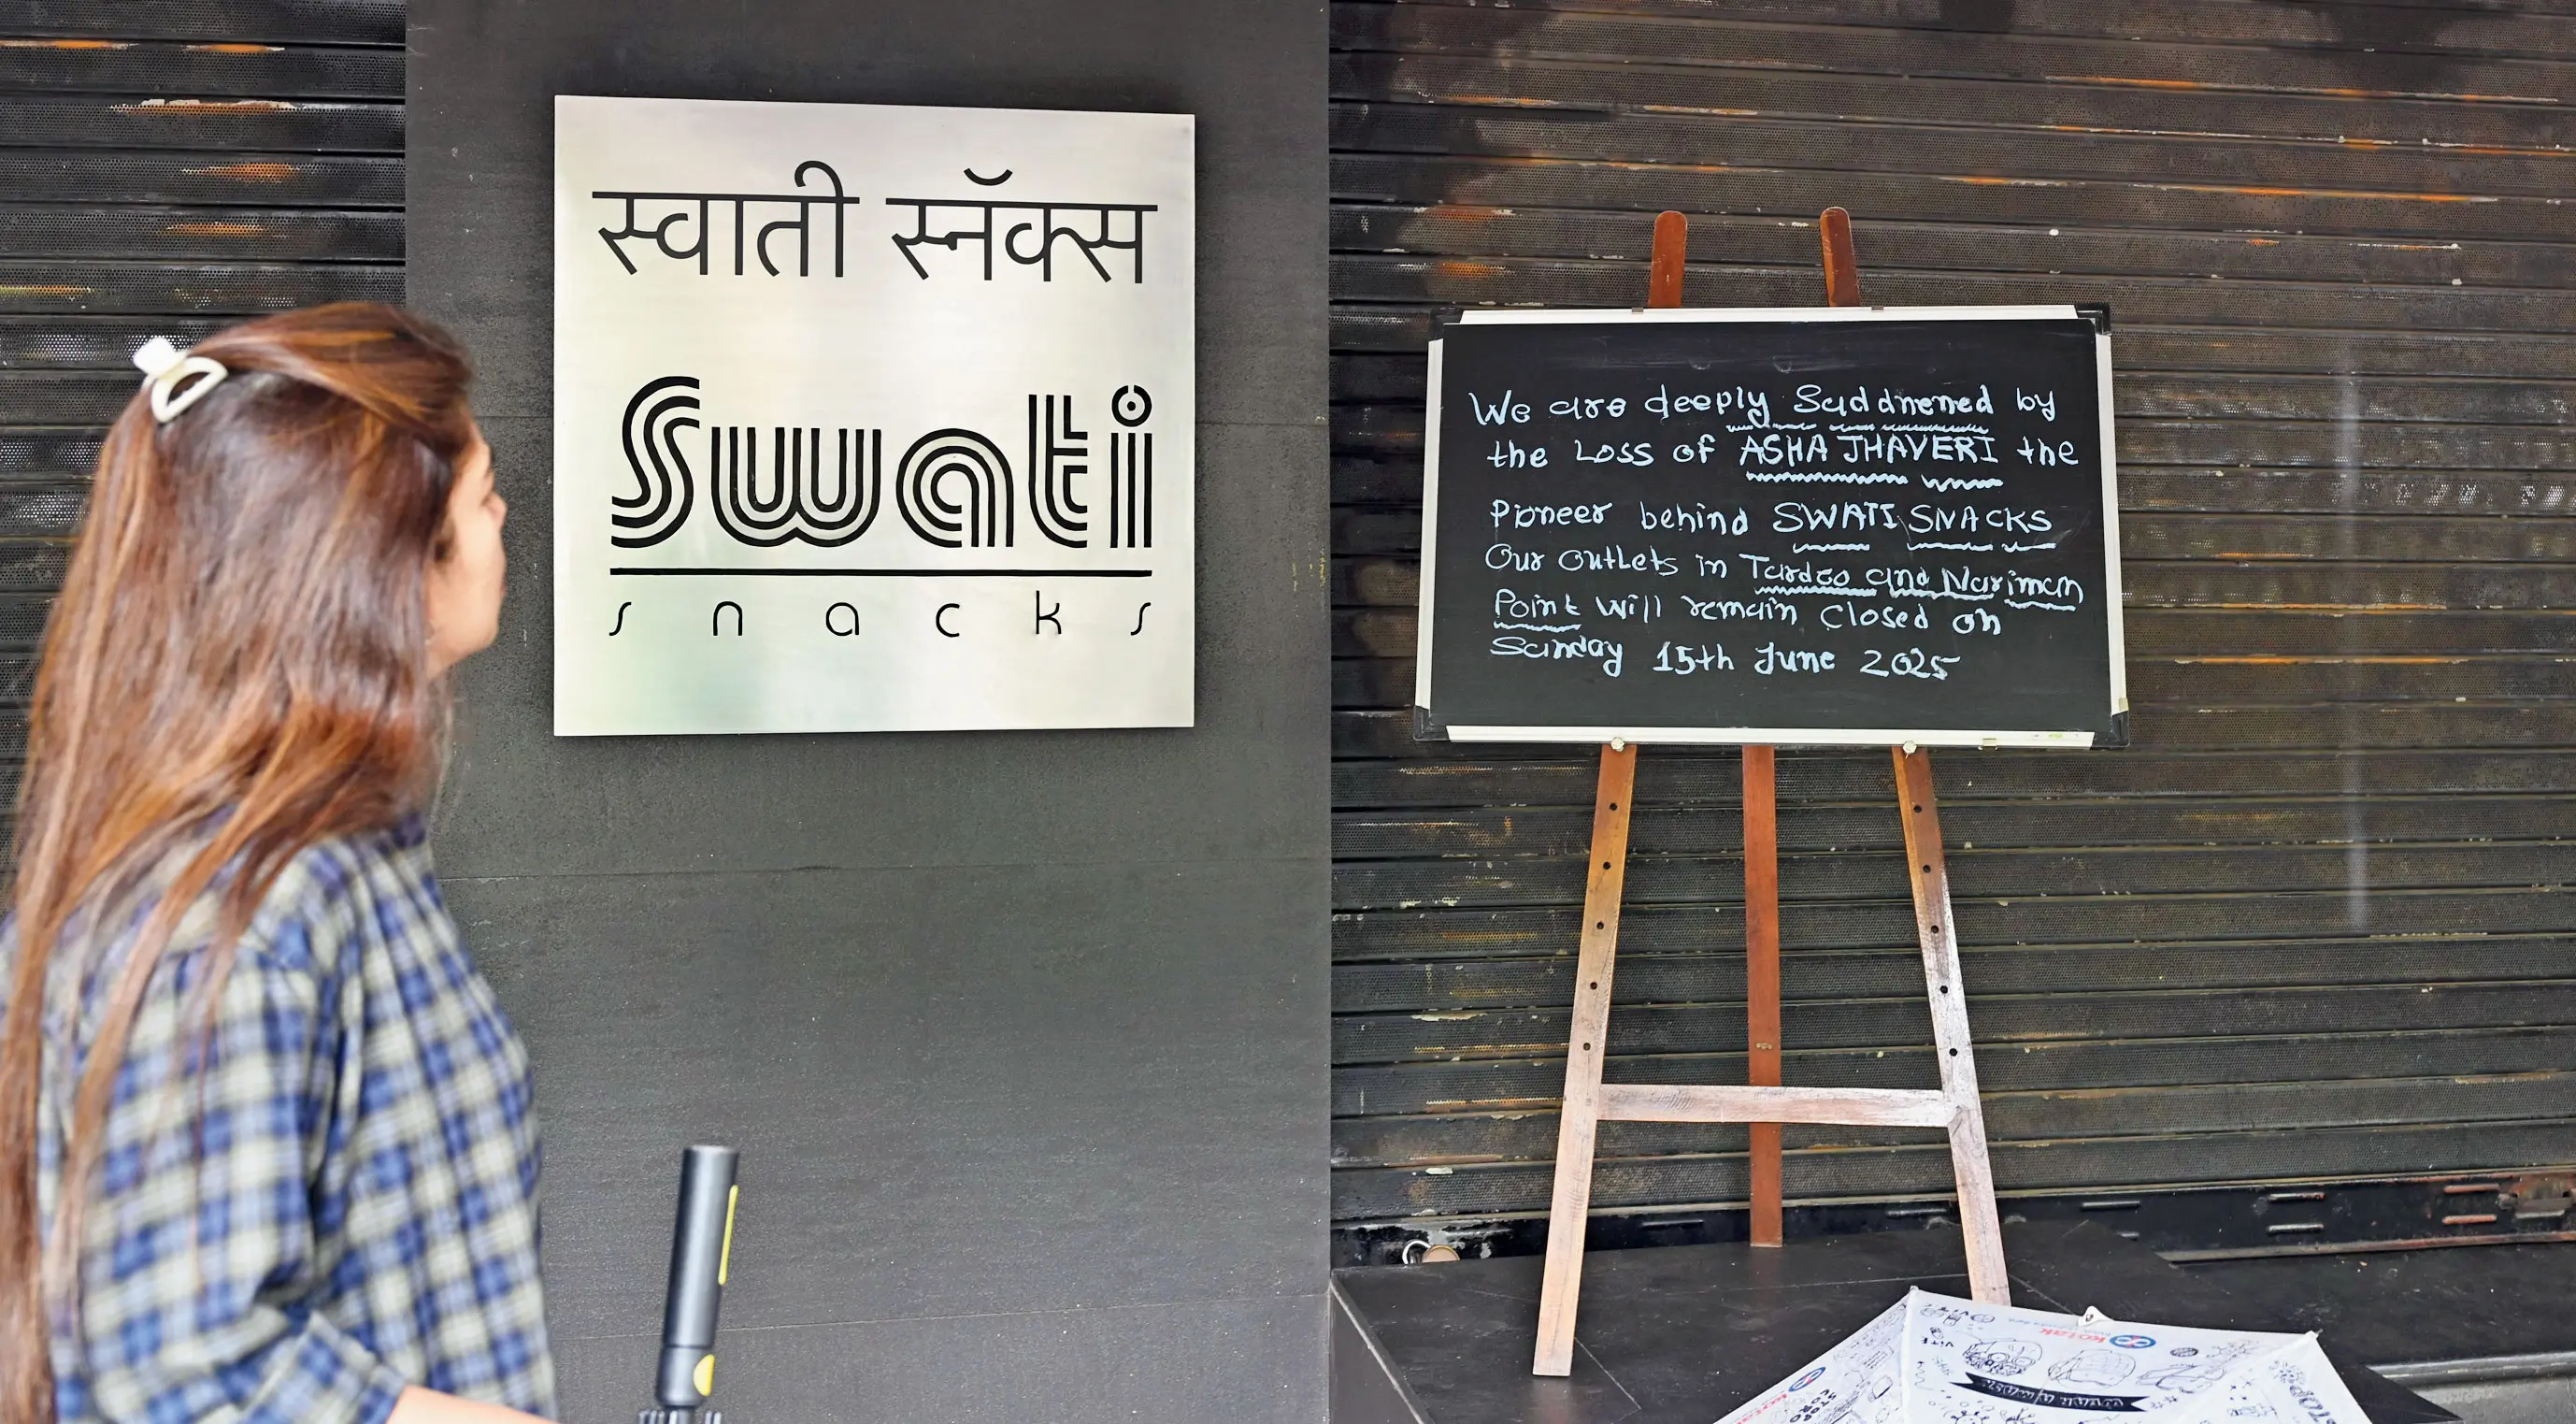 स्वाती स्नॅक्स
Swati
snacks
We are deeply Saddnened by
the Loss of ASHA JHAVERI the
Pioneer behind SWATI SNACKS
Our Outlets in Tardeo and Nariman
Point will remain closed on
Sunday 15th June 2025
kotak
kotak